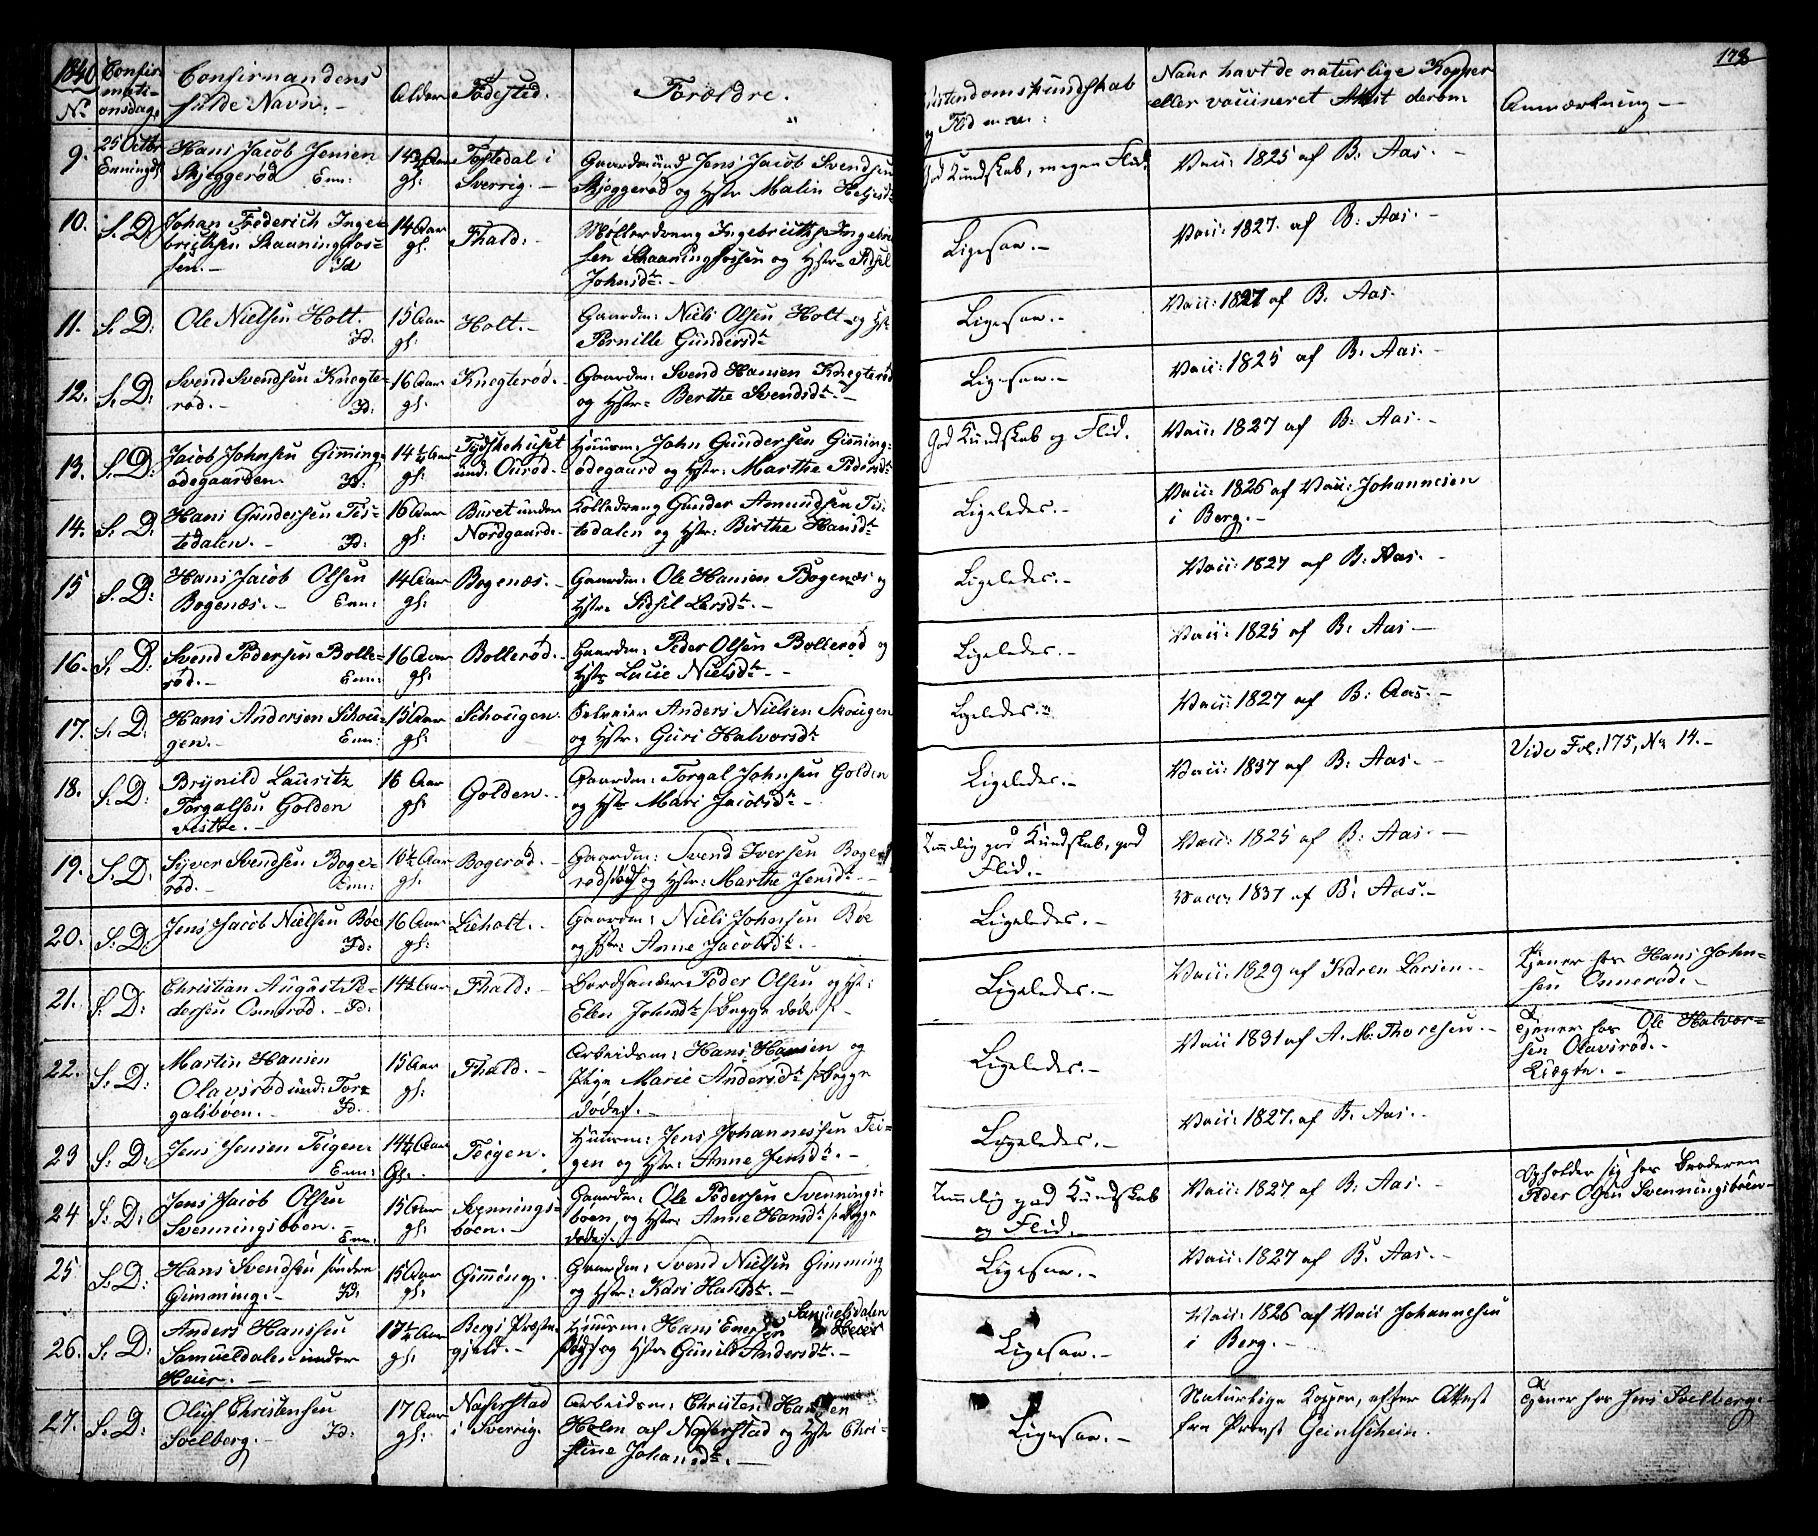 1840
Confir-
mati-
onsdag.
No
Confirmandens
fulde Navn.-
Alder
Fødested.
Forældre.
Christendomskundskab
og Flid
Naar havt de naturlige Kopper
eller vaccineret Attest derom
Anmærkning -
178
9. 25 Octbr Enningd.
Hans Jacob Jensen
Skjeggerød Enn:
gl:
Sverrig. -
Gaardmand Jens Jacob Svendsen
Skjeggerød og Hstr Malin
God Kundskab, megen Flid.
Vacc: 1825 af B: Aas. -
10. S. D
Johan Frederich Inge-
britsen Skaaningfos-
sen. - Id
14 Aar
gl:
Fhald: -
Møllerdreng Ingebrigt Ingebrit-
sen Skaaningfossen og Hstr: Sidsel
Johnsdtr. -
Ligesaa. -
Vacc: 1827. af B: Aas. -
11. S. D:
Ole Nielsen Holt.
Id:
15 Aar
gl:
Holt. -
Gaardm: Niels Olsen Holt og Hstr
Pernille Gundersdtr
Ligesaa. -
Vacc: 1827 af B. Aas.
12. S. D:
Svend Svendsen Knegte-
rød. - Id:
16 Aar
gl:
Knegterød. -
Gaardm: Svend Hansen Knegterød
og Hstr: Berthe Svendsdtr. -
Ligesaa. -
Vacc: 1825 af B: Aas. -
13. S. D:
Jacob Johnsen Gimming-
ødegaarden. Id:
14 ½ Aar
gl:
Tydskehuset
und: Ourød. -
Huusm: John Gundersen Gimming-
ødegaard og Hstr: Marthe Pedersdtr
God Kundskab og Flid.
Vacc: 1827 af B: Aas. -
14. S. D:
Hans Gundersen Tis-
tedalen. - Id:
16 Aar
gl:
Buret under
Nordgaard. -
Gunder Amundsen Tis-
tedalen og Hstr: Birthe Hansdtr
Ligeledes. -
Vacc: 1826 af Vacc: Johannesen
i Berg. -
15 S. D:
Hans Jacob Olsen
Bogenæs. - Enn:
14 Aar
gl:
Bogenæs. -
Gaardm: Ole Hansen Bogenæs og
Hstr: Sidsel Larsdtr. -
Ligeledes. -
Vacc: 1827 af B: Aas. -
16. S. D:
Svend Pedersen Bolle-
rød. - Enn:
16 Aar
gl:
Bollerød. -
Gaardm: Peder Olsen Bollerød og
Hstr Lucie Nielsdtr -
Ligeledes. -
Vacc: 1825 af B: Aas -
17. S. D:
Hans Andersen Schou-
gen. - Enn:
15 Aar
gl:
Schougen.
Selveier Anders Nielsen Skougen
og Hstr: Guri Halvorsdtr
Ligeledes. -
Vacc: 1827 af B: Aas. -
18. S. D:
Brynild Lauritz
Torgalsen Golden
vestre. -
15 Aar
gl:
Golden. -
Gaardm: Torgal Johnsen Golden
og Hstr Mari Jacobsdtr. -
Ligeledes. -
Vacc: 1837 af B: Aas. -
Vide Fol: 175, No 14. -
19. S. D:
Syver Svendsen Boge-
rød. - Enn:
16 ½ Aar
gl:
Bogerød. -
Gaardm: Svend Iversen Boge-
rød og Hstr: Marthe Jensdtr. -
Temmelig god Kundskab, god
Flid. -
Vacc: 1825 af B: Aas. -
20. S. D:
Jens Jacob Nielsen Bøe
Id:
16 Aar
gl:
Lieholt. -
Gaardm: Niels Johnsen Bøe
og Hstr: Anne Jacobsdtr. -
Ligeledes. -
Vacc: 1837 af B: Aas. -
21. S. D:
Christian August Pe-
dersen Onnerød. - Id:
14 ½ Aar
Fhald: -
Peder Olsen og Hst:
Elen Johnsdtr /: Begge døde :/ -
Ligeledes. -
Vacc: 1829 af Karen Larsen. -
Tjener hos Hans John-
sen Onnerød. -
22. S. D:
Martin Hansen
Olavsrød und: Tor-
galsbøen. - Id.
15 Aar
gl:
Fhald. -
Arbeidsm: Hans Hansen og
Pige Marie Andersdtr /: Begge
døde :/. -
Ligeledes. -
Vacc 1831 af A. M. Thoresen. -
Tjener hos Ole Halvor-
sen Olavsrød. -
Slægtn. -
23 S. D:
Jens Jensen Teigen
Enn:
14 ½ Aar
Gl:
Teigen.
Huusm: Jens Johannessen Tei-
gen og Hstr: Anne Jensdtr. -
Ligeledes. -
Vacc: 1827. af B: Aas. -
24 S. D:
Jens Jacob Olsen
Svenningsbøen. - Enn:
15 Aar
gl:
Svennings-
bøen. -
Gaardm: Ole Pedersen Svennings-
bøen og Hstr: Anne Hansdtr /: Begge
døde :/.
Temmelig god Kundskab
og Flid. -
Vacc: 1827 af B: Aas. -
Opholder sig hos Broderen
Peder Olsen Svenningsbøen -
25 S. D:
Hans Svendsen søndre
Gimming. - Id:
15 Aar
gl:
Gimming. -
Gaardm: Svend Nielsen Gimming
og Hstr: Kari Hansdtr. -
Ligesaa. -
Vacc: 1827 af B: Aas. -
26. S. D:
Anders Hansen
Samuelsdalen under
Heier. -
17 ½ Aar
gl:
Bergs Præste-
gjeld. -
Huusm: Hans Samuelsdalen
Heier
og Hstr Gunild Andersdtr. -
Ligesaa. -
Vacc: 1826 af Vacc Johannesen
i Berg. -
27. S. D:
Oluf Christensen
Soelberg. - Id:
17 Aar
gl:
Naserstad
i Sverrig.
Arbeidsm: Christen Hansen
Holm af Naserstad og Hstr Chri-
stine Johansdtr. -
Ligesaa. -
Naturlige Kopper, efter Attest
fra Provst
Tjener hos Jens Soelberg. -